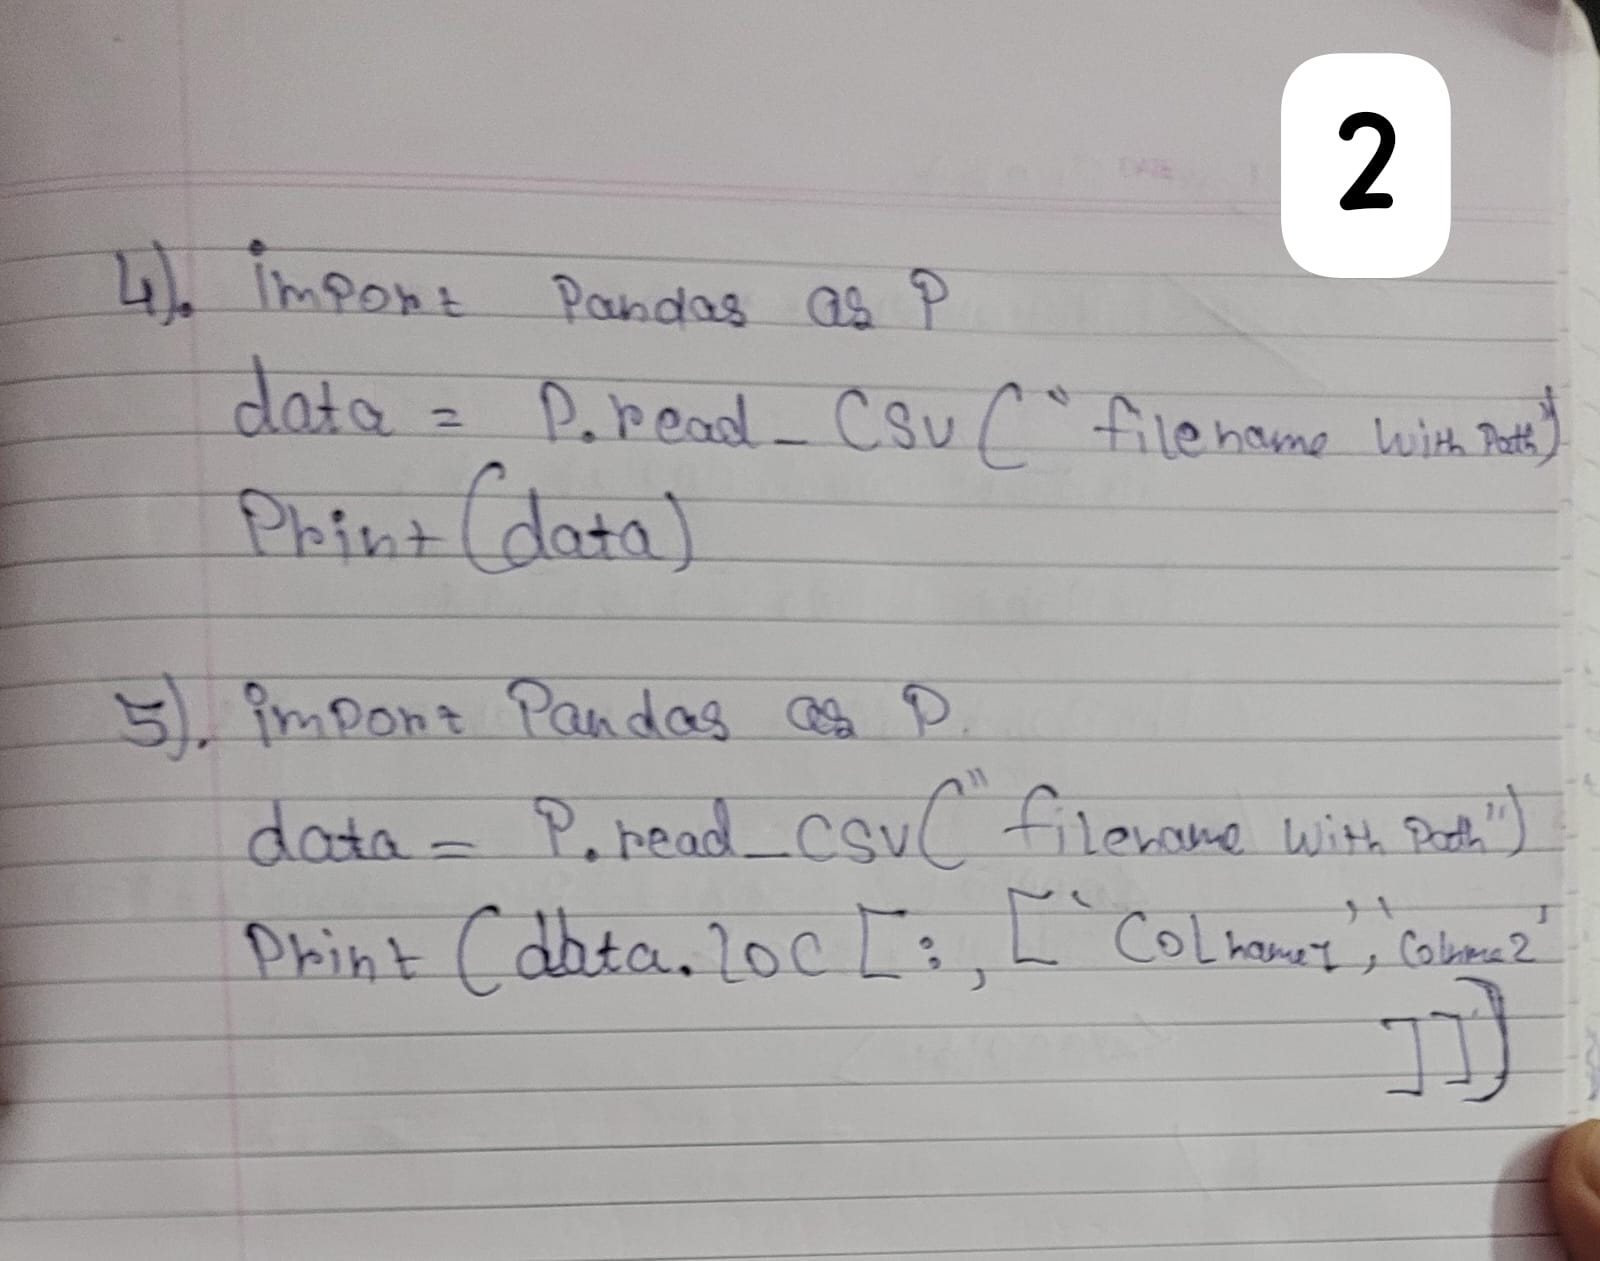 2
4). import Pandas as P
data = P.read_CSV("filename with Path")
Print(data)
5). import Pandas as P.
data = P.read_CSV("filename with Path")
Print (data.loc[:, ['Colname1', 'Colname2'
]])